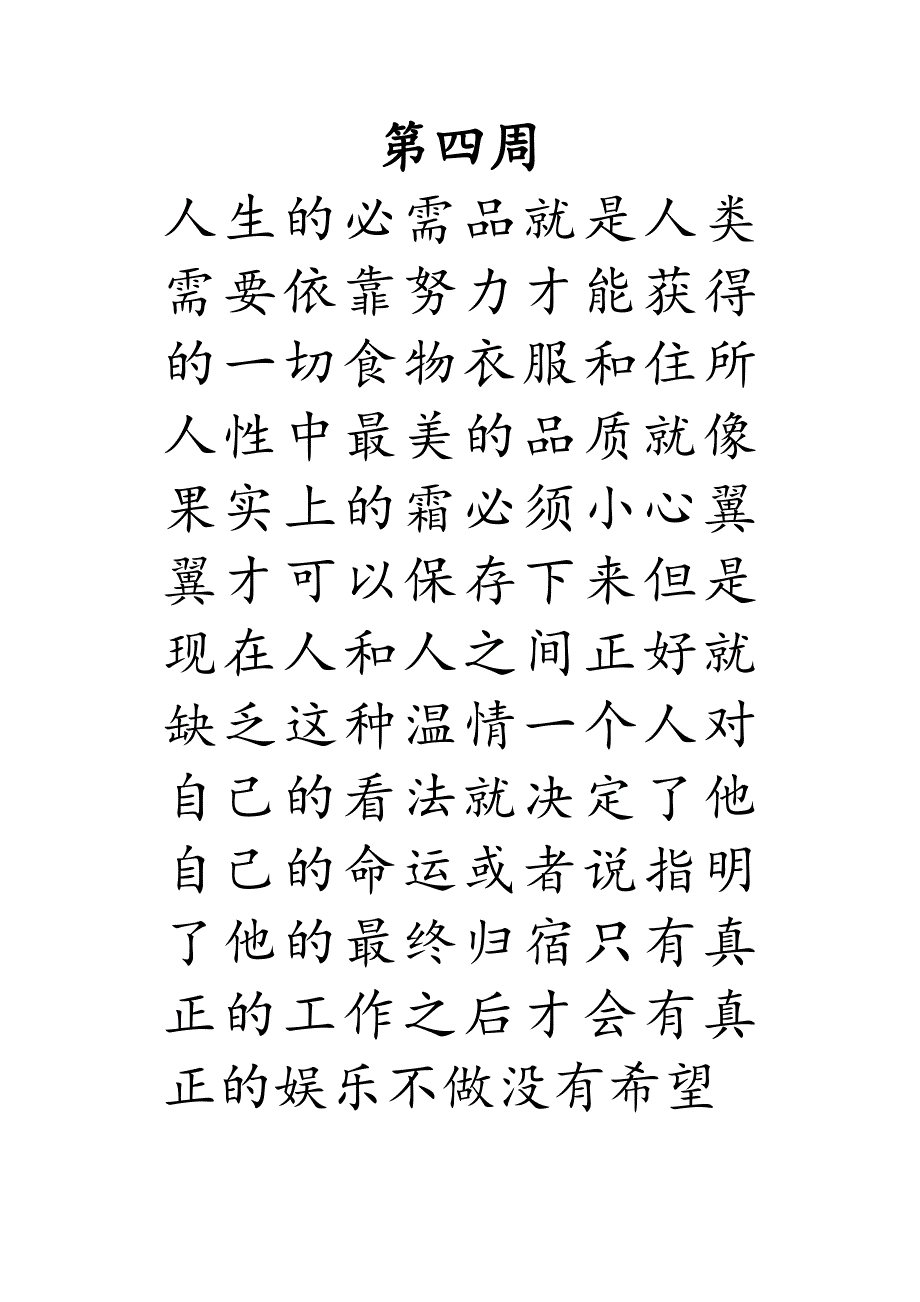 第四周
人生的必需品就是人类
需要依靠努力才能获得
的一切食物衣服和住所
人性中最美的品质就像
果实上的霜必须小心翼
翼才可以保存下来但是
现在人和人之间正好就
缺乏这种温情一个人对
自己的看法就决定了他
自己的命运或者说指明
了他的最终归宿只有真
正的工作之后才会有真
正的娱乐不做没有希望